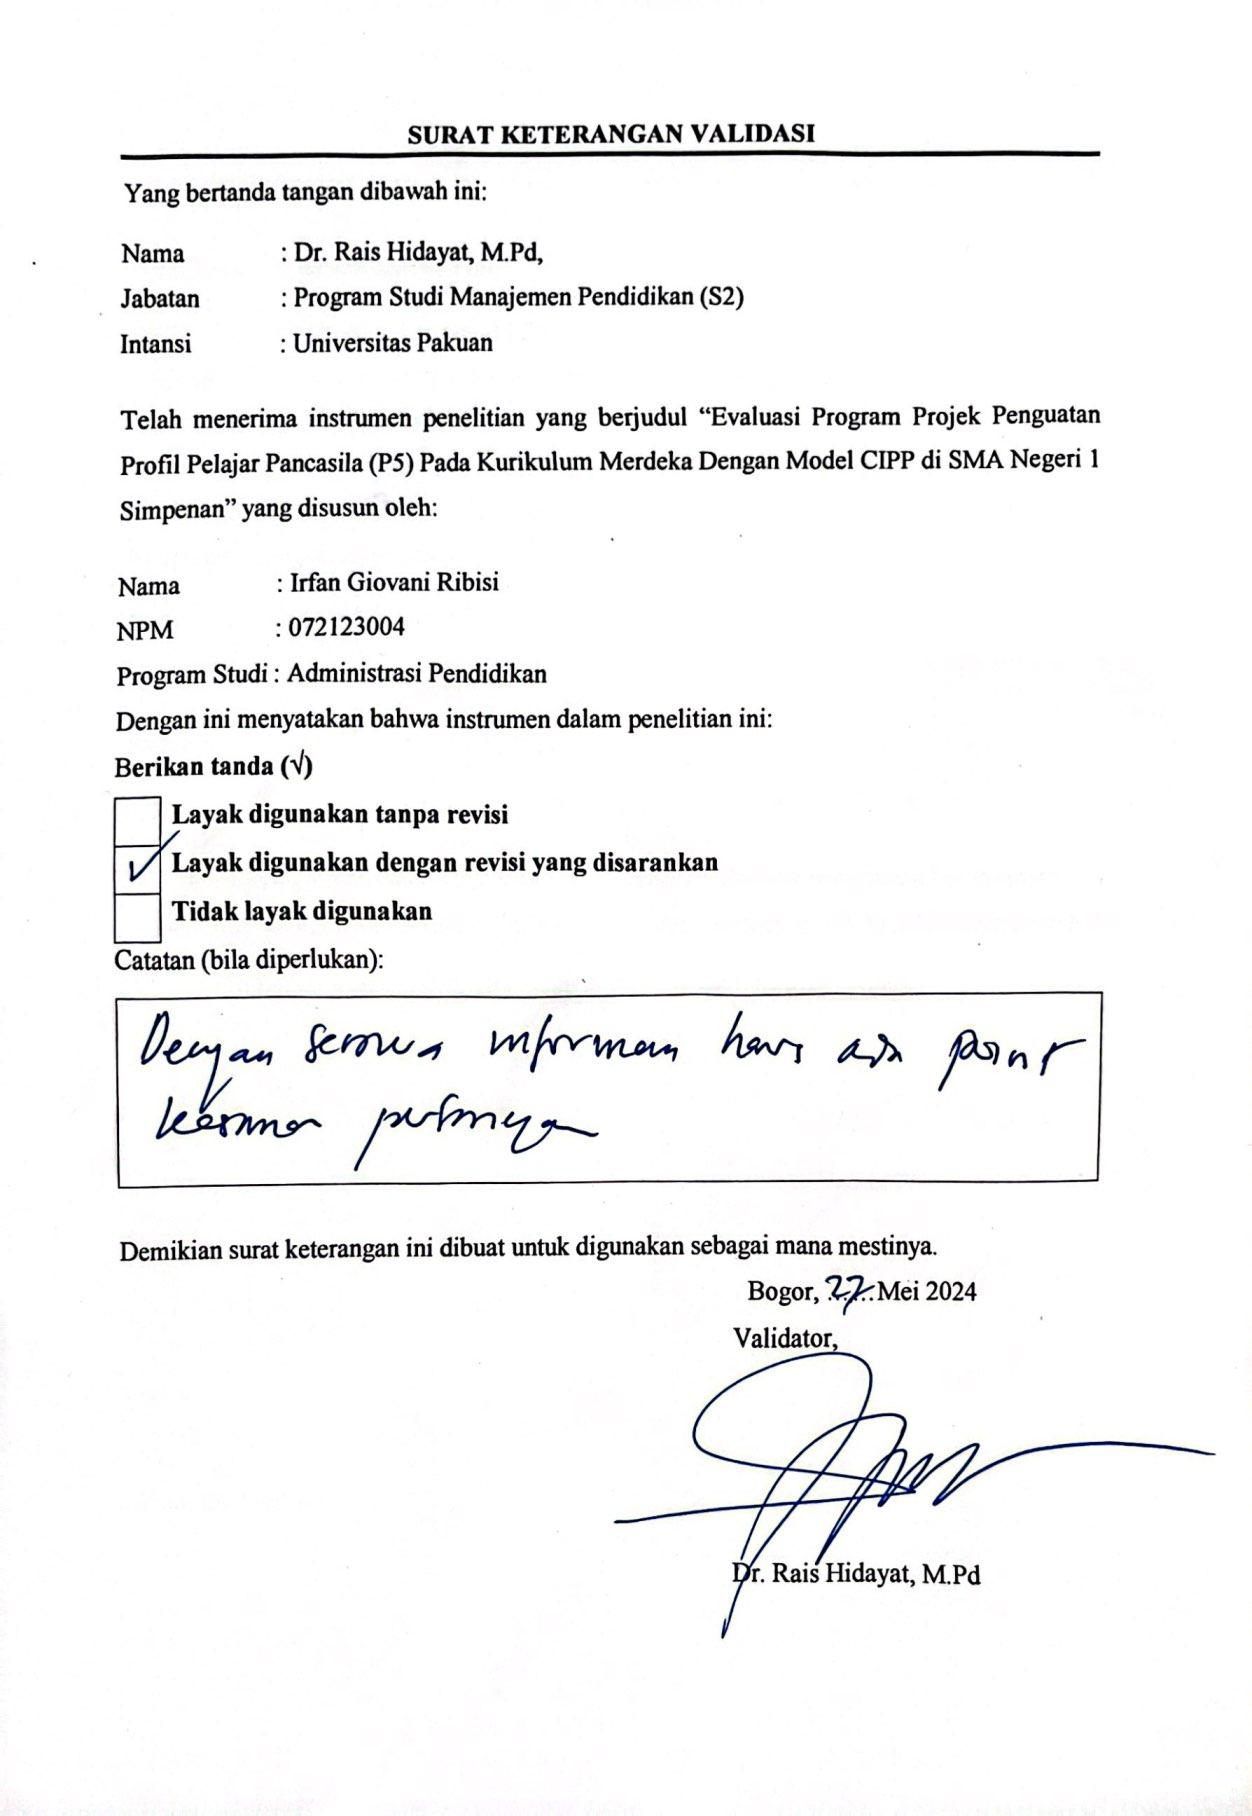 SURAT KETERANGAN VALIDASI
Yang bertanda tangan dibawah ini:
Nama : Dr. Rais Hidayat, M.Pd,
Jabatan : Program Studi Manajemen Pendidikan (S2)
Intansi : Universitas Pakuan
Telah menerima instrumen penelitian yang berjudul “Evaluasi Program Projek Penguatan
Profil Pelajar Pancasila (P5) Pada Kurikulum Merdeka Dengan Model CIPP di SMA Negeri 1
Simpenan” yang disusun oleh:
Nama : Irfan Giovani Ribisi
NPM : 072123004
Program Studi : Administrasi Pendidikan
Dengan ini menyatakan bahwa instrumen dalam penelitian ini:
Berikan tanda (√)
Layak digunakan tanpa revisi
✓ Layak digunakan dengan revisi yang disarankan
Tidak layak digunakan
Catatan (bila diperlukan):
Dengan semua informan harus ada point
Demikian surat keterangan ini dibuat untuk digunakan sebagai mana mestinya.
Bogor, 27 Mei 2024
Validator,
Dr. Rais Hidayat, M.Pd